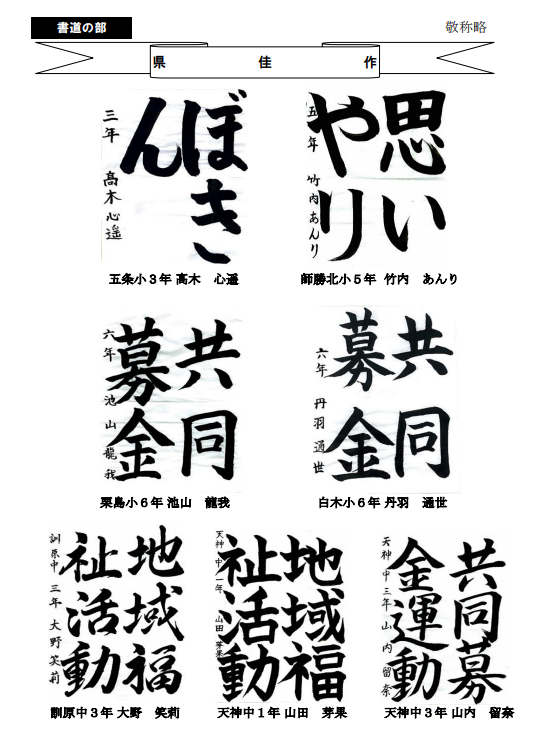 書道の部
敬称略
県佳作
ぼきん
三年 髙木心遥
五条小3年 髙木 心遥
思いやり
五年 竹内あんり
師勝北小5年 竹内 あんり
共同募金
六年 池山龍我
栗島小6年 池山 龍我
共同募金
六年 丹羽通世
白木小6年 丹羽 通世
地域福祉活動
訓原中 三年 大野笑莉
訓原中3年 大野 笑莉
地域福祉活動
天神中一年 山田芽果
天神中1年 山田 芽果
共同募金運動
天神中三年 山内留奈
天神中3年 山内 留奈